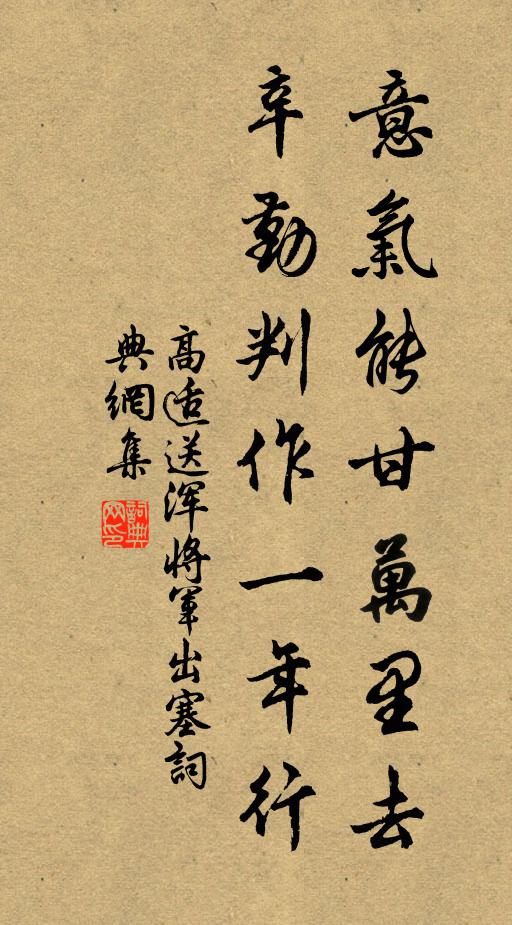 意氣能甘萬里去
辛勤判作一年行
高适送浑将軍出塞詞
典網集
詞典
网印